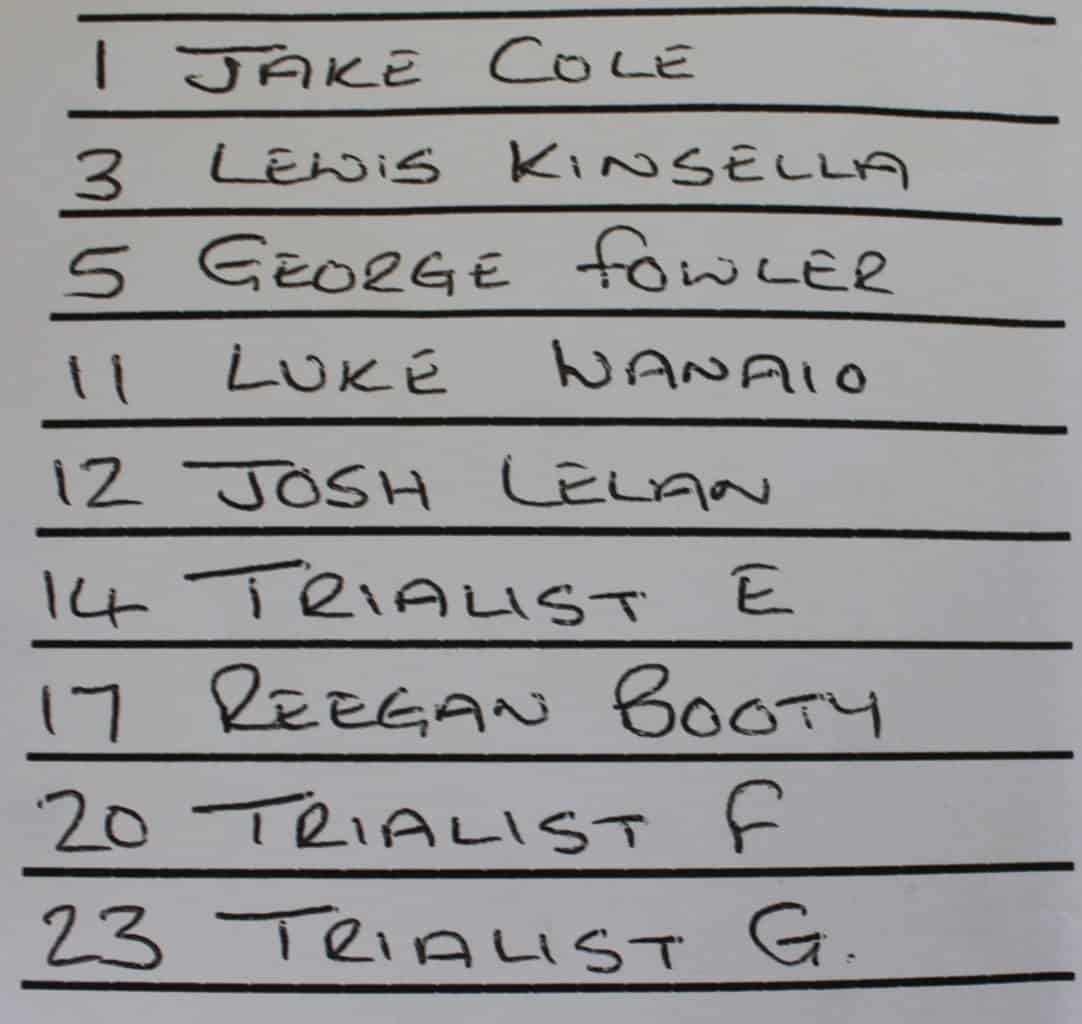 1 JAKE COLE
3 LEWIS KINSELLA
5 GEORGE FOWLER
11 LUKE WANAIO
12 JOSH LELAN
14 TRIALIST E
17 REEGAN BOOTY
20 TRIALIST F
23 TRIALIST G.